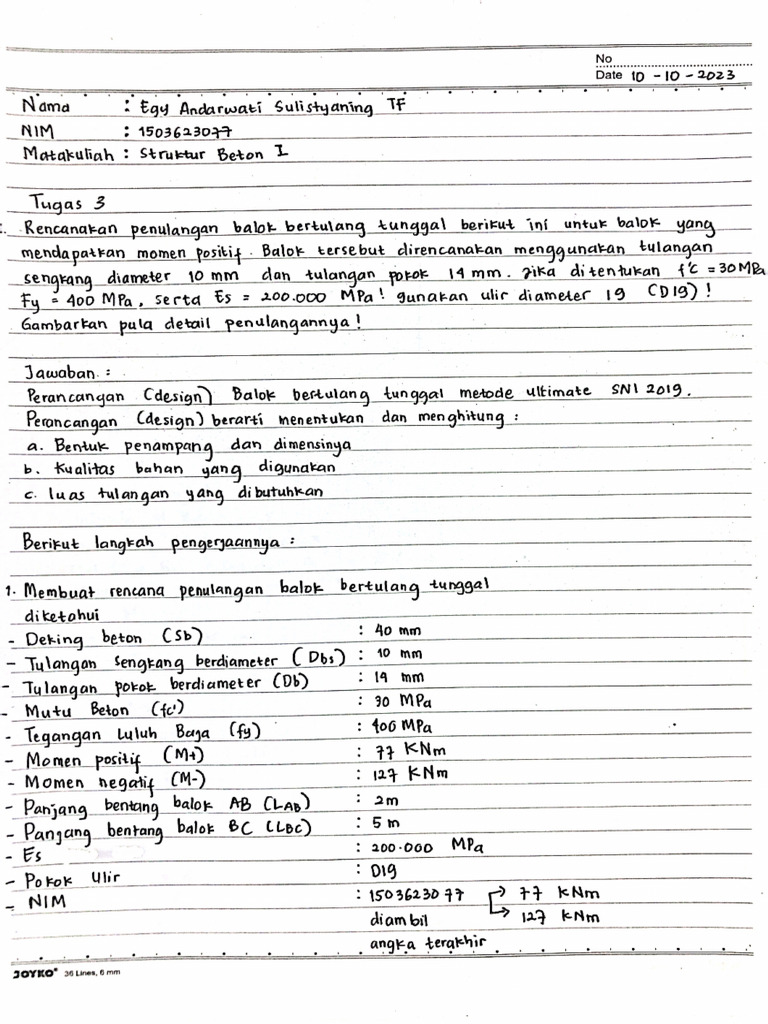 No
Date 10 - 10 - 2023
Nama : Egy Andarwati Sulistyaning TF
NIM : 1503623077
Matakuliah : Struktur Beton I
Tugas 3
Rencanakan penulangan balok bertulang tunggal berikut ini untuk balok yang
mendapatkan momen positif. Balok tersebut direncanakan menggunakan tulangan
sengkang diameter 10 mm dan tulangan pokok 14 mm. Jika ditentukan f'c = 30 MPa
Fy = 400 MPa, serta Es = 200.000 MPa! gunakan ulir diameter 19 (D19)!
Gambarkan pula detail penulangannya!
Jawaban :
Perancangan (design) Balok bertulang tunggal metode ultimate SNI 2019.
Perancangan (design) berarti menentukan dan menghitung :
a. Bentuk penampang dan dimensinya
b. Kualitas bahan yang digunakan
c. luas tulangan yang dibutuhkan
Berikut langkah pengerjaannya :
1. Membuat rencana penulangan balok bertulang tunggal
diketahui
- Deking beton (Sb) : 40 mm
- Tulangan sengkang berdiameter (Dbs) : 10 mm
- Tulangan pokok berdiameter (Db) : 14 mm
- Mutu Beton (fc') : 30 MPa
- Tegangan Luluh Baja (fy) : 400 MPa
- Momen positif (M+) : 77 KNm
- Momen negatif (M-) : 127 KNm
- Panjang bentang balok AB (LAB) : 2m
- Panjang bentang balok BC (LBC) : 5 m
- Es : 200.000 MPa
- Pokok Ulir : D19
- NIM : 1503623077 → 77 KNm
diambil → 127 KNm
angka terakhir
JOYKO® 36 Lines, 6 mm